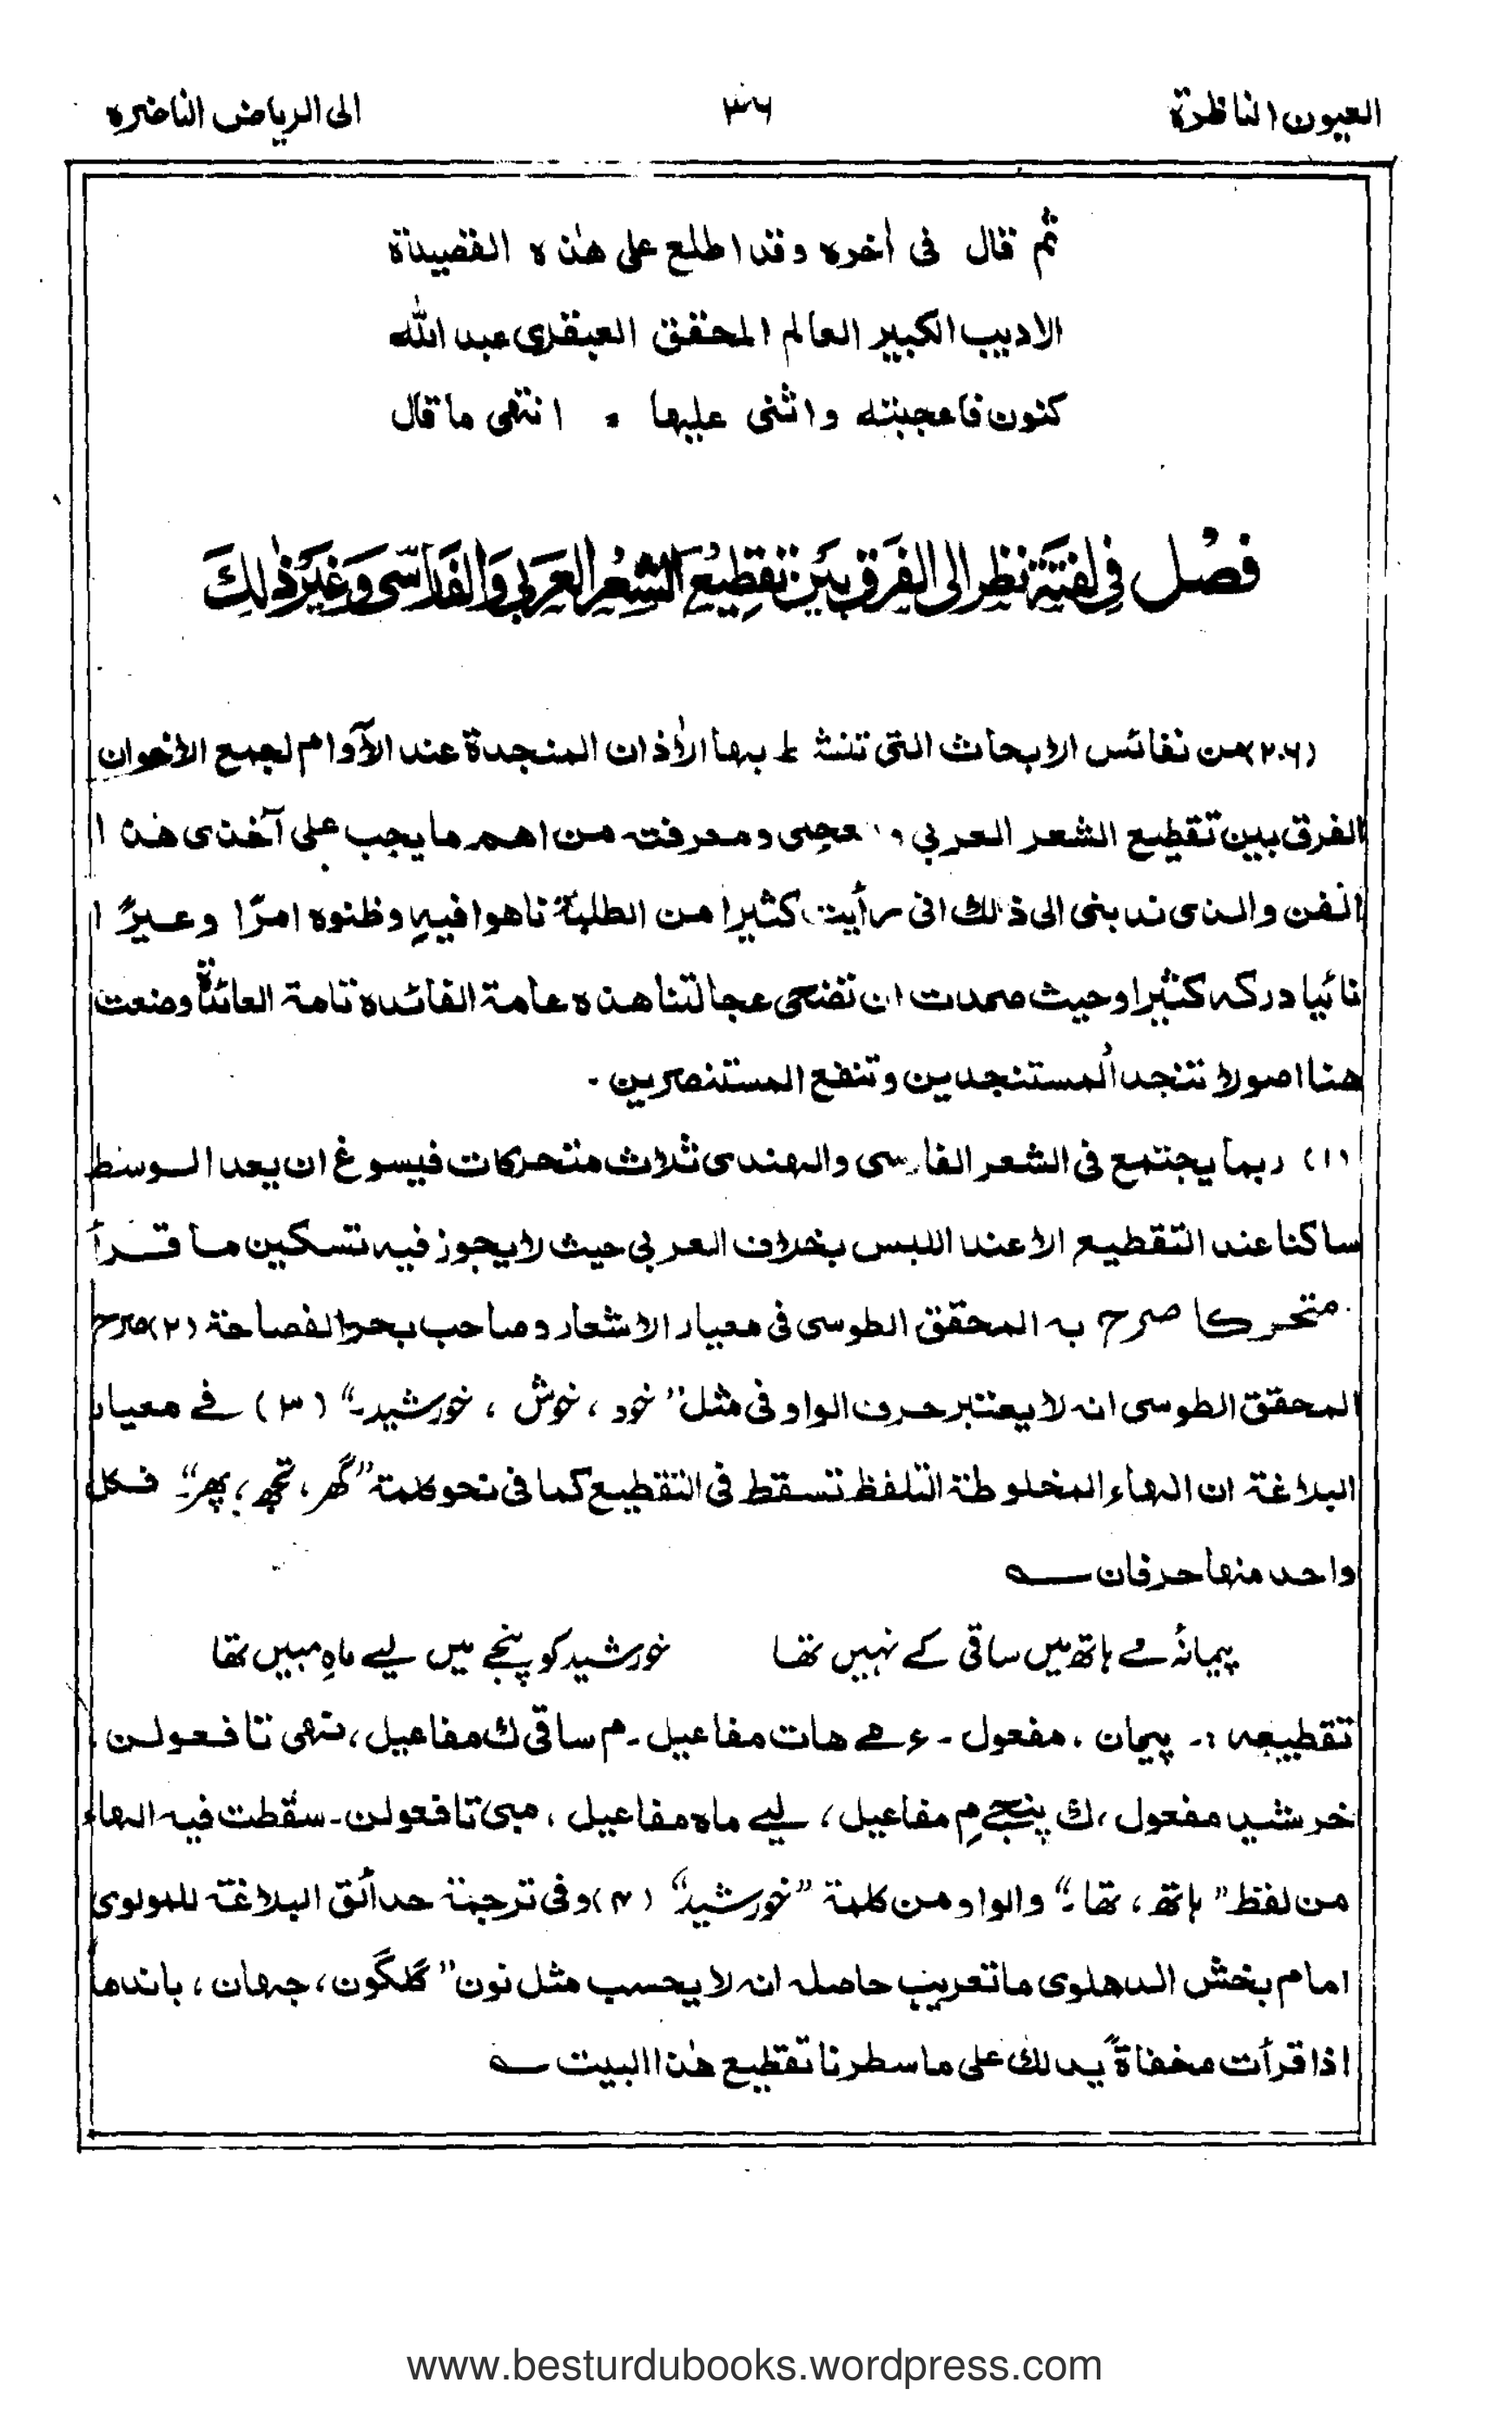 العيون الناظرة
٣٦
الى الرياض الناضره
ثم قال فى أخره وقد اطلع على هٰذه القصيدة
الاديب الكبير العالم المحقق العبقرى عبد الله
كنون فاعجبته واثنى عليها ۰ انتهى ما قال
فَصْل فِي لفتَة نظر الى الفَرَق بَيْن تقطِيع الشِعْر العَرَبي وَالفَارْسِى وَغيرَ ذٰلِكَ
(٢٠٦) من نفائس الابحاث التى تنشط بها الأذان المنجدة عند الآوام لجمع الاخوان
الفرق بين تقطيع الشعر العربي و العجمى ومعرفته من اهم ما يجب على آخذى هذا
الفن والذى ندبنى الى ذلك انى رأيت كثيرا من الطلبة تاهوا فيهِ وظنوه امرًا وعيرًا
نائيا دركه كثيرا وحيث صمدت ان تضحى عجالتنا هذه عامة الفائده تامة العائدة وضعت
هنا اصولا تنجد المستنجدين وتنفع المستنصرين ۔
(١) ربما يجتمع فى الشعر الفارسى والهندى ثلاث متحركات فيسوغ ان يعد الوسط
ساكنا عند التقطيع الا عند اللبس بخلاف العربى حيث لا يجوز فيه تسكين ما قرأ
متحركا صرح به المحقق الطوسى فى معيار الاشعار وصاحب بحر الفصاحة (٢) صرح
المحقق الطوسى انه لا يعتبر حرف الواو فى مثل "خود ، خوش ، خورشید۔" (٣) فے معيار
البلاغة ان الهاء المخلوطة التلفظ تسقط فى التقطيع كما فى نحو كلمة "گھر ، تجھ ، پھر۔" فكل
واحد منها حرفان ؎
پیمانۂ مے ہاتھ میں ساقی کے نہیں تھا خورشید کو پنجے میں لیے ماہِ مبیں تھا
تقطيعه :۔ پیمان ، مفعول ۔ ء مے هات مفاعیل ۔ م ساقی ك مفاعیل ، نهی تا فعولن
خرشید مفعول ، ك پنجے مِ مفاعیل ، لیے ماه مفاعیل ، مبی تا فعولن ۔ سقطت فيه الهاء
من لفظ "ہاتھ ، تھا ۔" والواو من كلمة "خورشید" (۴) وفى ترجمة حدائق البلاغة للمولوى
امام بخش الدهلوى ما تعريبه حاصله انه لا يحسب مثل نون "گلگون ، جهان ، باندھا
اذا قرأت مخفاةً يدلك على ما سطرنا تقطيع هٰذا البيت ؎
www.besturdubooks.wordpress.com